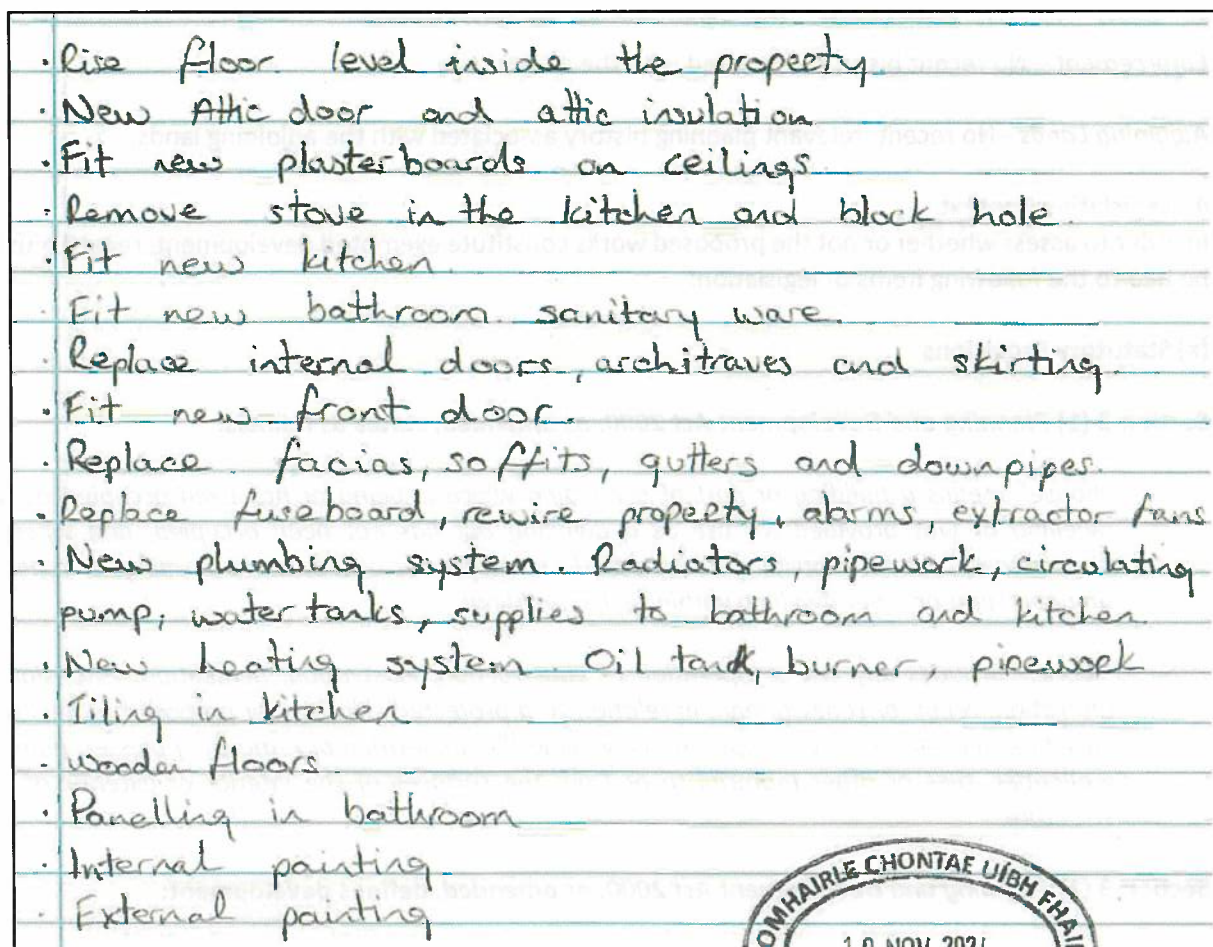 · Rise floor level inside the property.
· New Attic door and attic insulation
· Fit new plasterboards on ceilings
· Remove stove in the kitchen and block hole.
· Fit new kitchen.
· Fit new bathroom sanitary ware.
· Replace internal doors, architraves and skirting.
· Fit new front door.
· Replace facias, soffits, gutters and downpipes.
· Replace fuseboard, rewire property, alarms, extractor fans
· New plumbing system. Radiators, pipework, circulating
pump, water tanks, supplies to bathroom and kitchen.
· New heating system. Oil tank, burner, pipework
· Tiling in kitchen
· wooden floors
· Panelling in bathroom
· Internal painting
· External painting
OMHAIRLE CHONTAE UÍBH FHAI
NOV 202